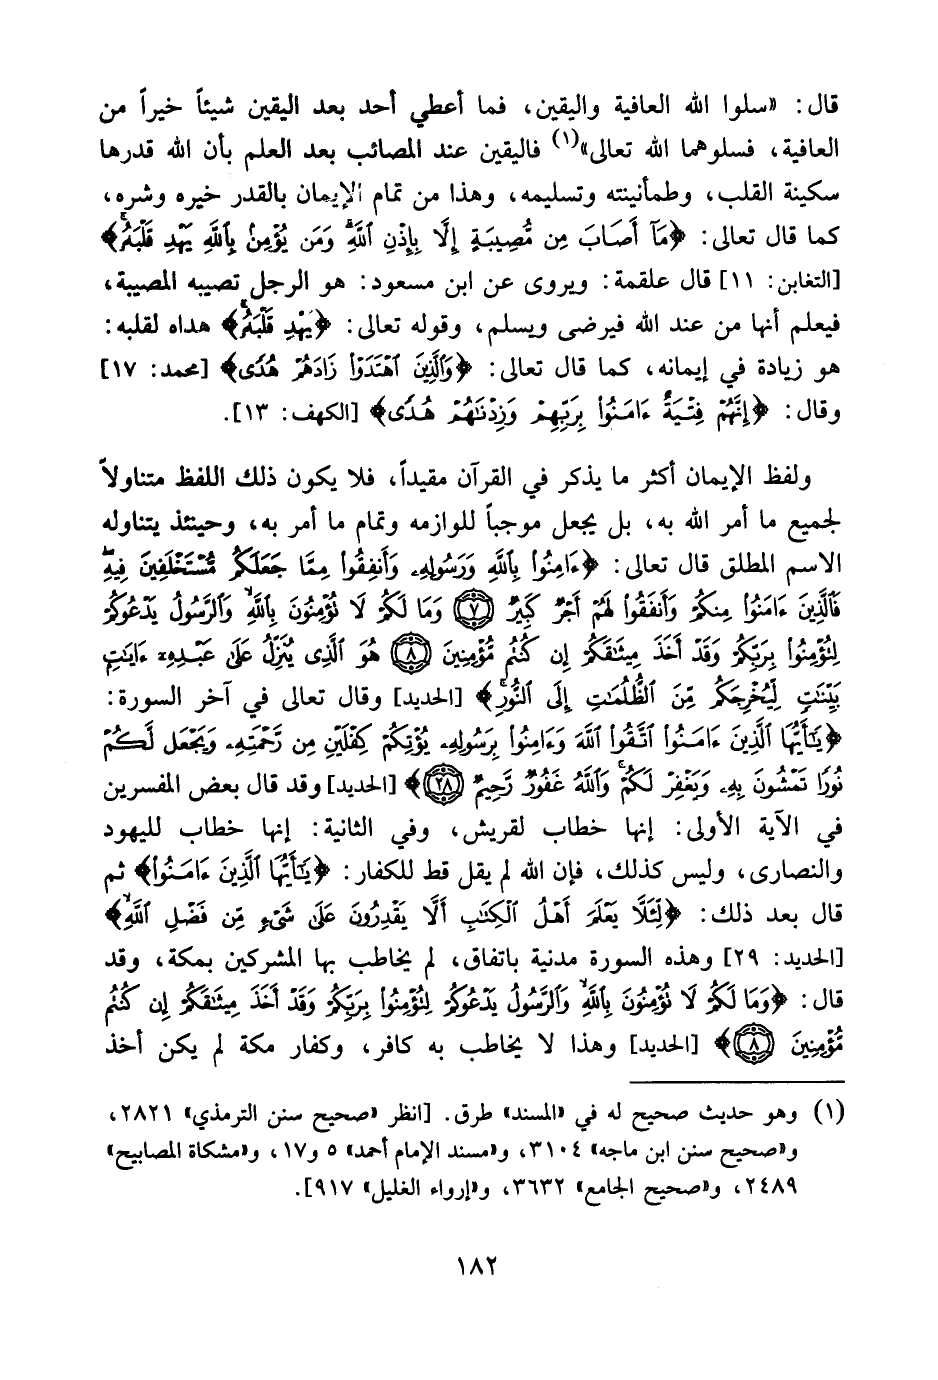 قال: «سلوا الله العافية واليقين، فما أعطي أحد بعد اليقين شيئاً خيراً من
العافية، فسلوهما الله تعالى»(١) فاليقين عند المصائب بعد العلم بأن الله قدرها
سكينة القلب، وطمأنينته وتسليمه، وهذا من تمام الإيمان بالقدر خيره وشره،
كما قال تعالى: ﴿مَآ أَصَابَ مِن مُّصِيبَةٍ إِلَّا بِإِذْنِ ٱللَّهِۗ وَمَن يُؤْمِنۢ بِٱللَّهِ يَهْدِ قَلْبَهُۥۚ﴾
[التغابن: ١١] قال علقمة: ويروى عن ابن مسعود: هو الرجل تصيبه المصيبة،
فيعلم أنها من عند الله فيرضى ويسلم، وقوله تعالى: ﴿يَهْدِ قَلْبَهُۥۚ﴾ هداه لقلبه:
هو زيادة في إيمانه، كما قال تعالى: ﴿وَٱلَّذِينَ ٱهْتَدَوْا۟ زَادَهُمْ هُدًى﴾ [محمد: ١٧]
وقال: ﴿إِنَّهُمْ فِتْيَةٌ ءَامَنُوا۟ بِرَبِّهِمْ وَزِدْنَٰهُمْ هُدًى﴾ [الكهف: ١٣].
ولفظ الإيمان أكثر ما يذكر في القرآن مقيداً، فلا يكون ذلك اللفظ متناولاً
لجميع ما أمر الله به، بل يجعل موجباً للوازمه وتمام ما أمر به، وحينئذ يتناوله
الاسم المطلق قال تعالى: ﴿ءَامِنُوا۟ بِٱللَّهِ وَرَسُولِهِۦ وَأَنفِقُوا۟ مِمَّا جَعَلَكُم مُّسْتَخْلَفِينَ فِيهِۖ
فَٱلَّذِينَ ءَامَنُوا۟ مِنكُمْ وَأَنفَقُوا۟ لَهُمْ أَجْرٌ كَبِيرٌ ۝٧ وَمَا لَكُمْ لَا تُؤْمِنُونَ بِٱللَّهِۙ وَٱلرَّسُولُ يَدْعُوكُمْ
لِتُؤْمِنُوا۟ بِرَبِّكُمْ وَقَدْ أَخَذَ مِيثَٰقَكُمْ إِن كُنتُم مُّؤْمِنِينَ ۝٨ هُوَ ٱلَّذِى يُنَزِّلُ عَلَىٰ عَبْدِهِۦٓ ءَايَٰتٍۭ
بَيِّنَٰتٍ لِّيُخْرِجَكُم مِّنَ ٱلظُّلُمَٰتِ إِلَى ٱلنُّورِۚ﴾ [الحديد] وقال تعالى في آخر السورة:
﴿يَٰٓأَيُّهَا ٱلَّذِينَ ءَامَنُوا۟ ٱتَّقُوا۟ ٱللَّهَ وَءَامِنُوا۟ بِرَسُولِهِۦ يُؤْتِكُمْ كِفْلَيْنِ مِن رَّحْمَتِهِۦ وَيَجْعَل لَّكُمْ
نُورًا تَمْشُونَ بِهِۦ وَيَغْفِرْ لَكُمْۚ وَٱللَّهُ غَفُورٌ رَّحِيمٌ ۝٢٨﴾ [الحديد] وقد قال بعض المفسرين
في الآية الأولى: إنها خطاب لقريش، وفي الثانية: إنها خطاب لليهود
والنصارى، وليس كذلك، فإن الله لم يقل قط للكفار: ﴿يَٰٓأَيُّهَا ٱلَّذِينَ ءَامَنُوا۟﴾ ثم
قال بعد ذلك: ﴿لِّئَلَّا يَعْلَمَ أَهْلُ ٱلْكِتَٰبِ أَلَّا يَقْدِرُونَ عَلَىٰ شَىْءٍ مِّن فَضْلِ ٱللَّهِۙ﴾
[الحديد: ٢٩] وهذه السورة مدنية باتفاق، لم يخاطب بها المشركين بمكة، وقد
قال: ﴿وَمَا لَكُمْ لَا تُؤْمِنُونَ بِٱللَّهِۙ وَٱلرَّسُولُ يَدْعُوكُمْ لِتُؤْمِنُوا۟ بِرَبِّكُمْ وَقَدْ أَخَذَ مِيثَٰقَكُمْ إِن كُنتُم
مُّؤْمِنِينَ ۝٨﴾ [الحديد] وهذا لا يخاطب به كافر، وكفار مكة لم يكن أخذ
(١) وهو حديث صحيح له في «المسند» طرق. [انظر «صحيح سنن الترمذي» ٢٨٢١،
و«صحيح سنن ابن ماجه» ٣١٠٤، و«مسند الإمام أحمد» ٥ و١٧، و«مشكاة المصابيح»
٢٤٨٩، و«صحيح الجامع» ٣٦٣٢، و«إرواء الغليل» ٩١٧].
١٨٢